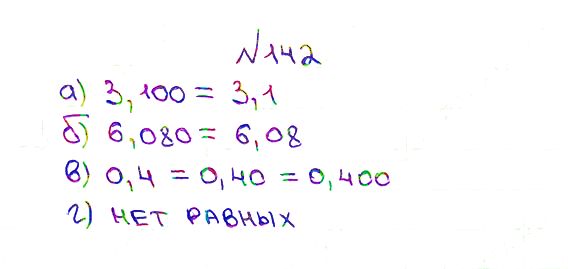 №142
а) 3,100 = 3,1
б) 6,080 = 6,08
в) 0,4 = 0,40 = 0,400
г) НЕТ РАВНЫХ